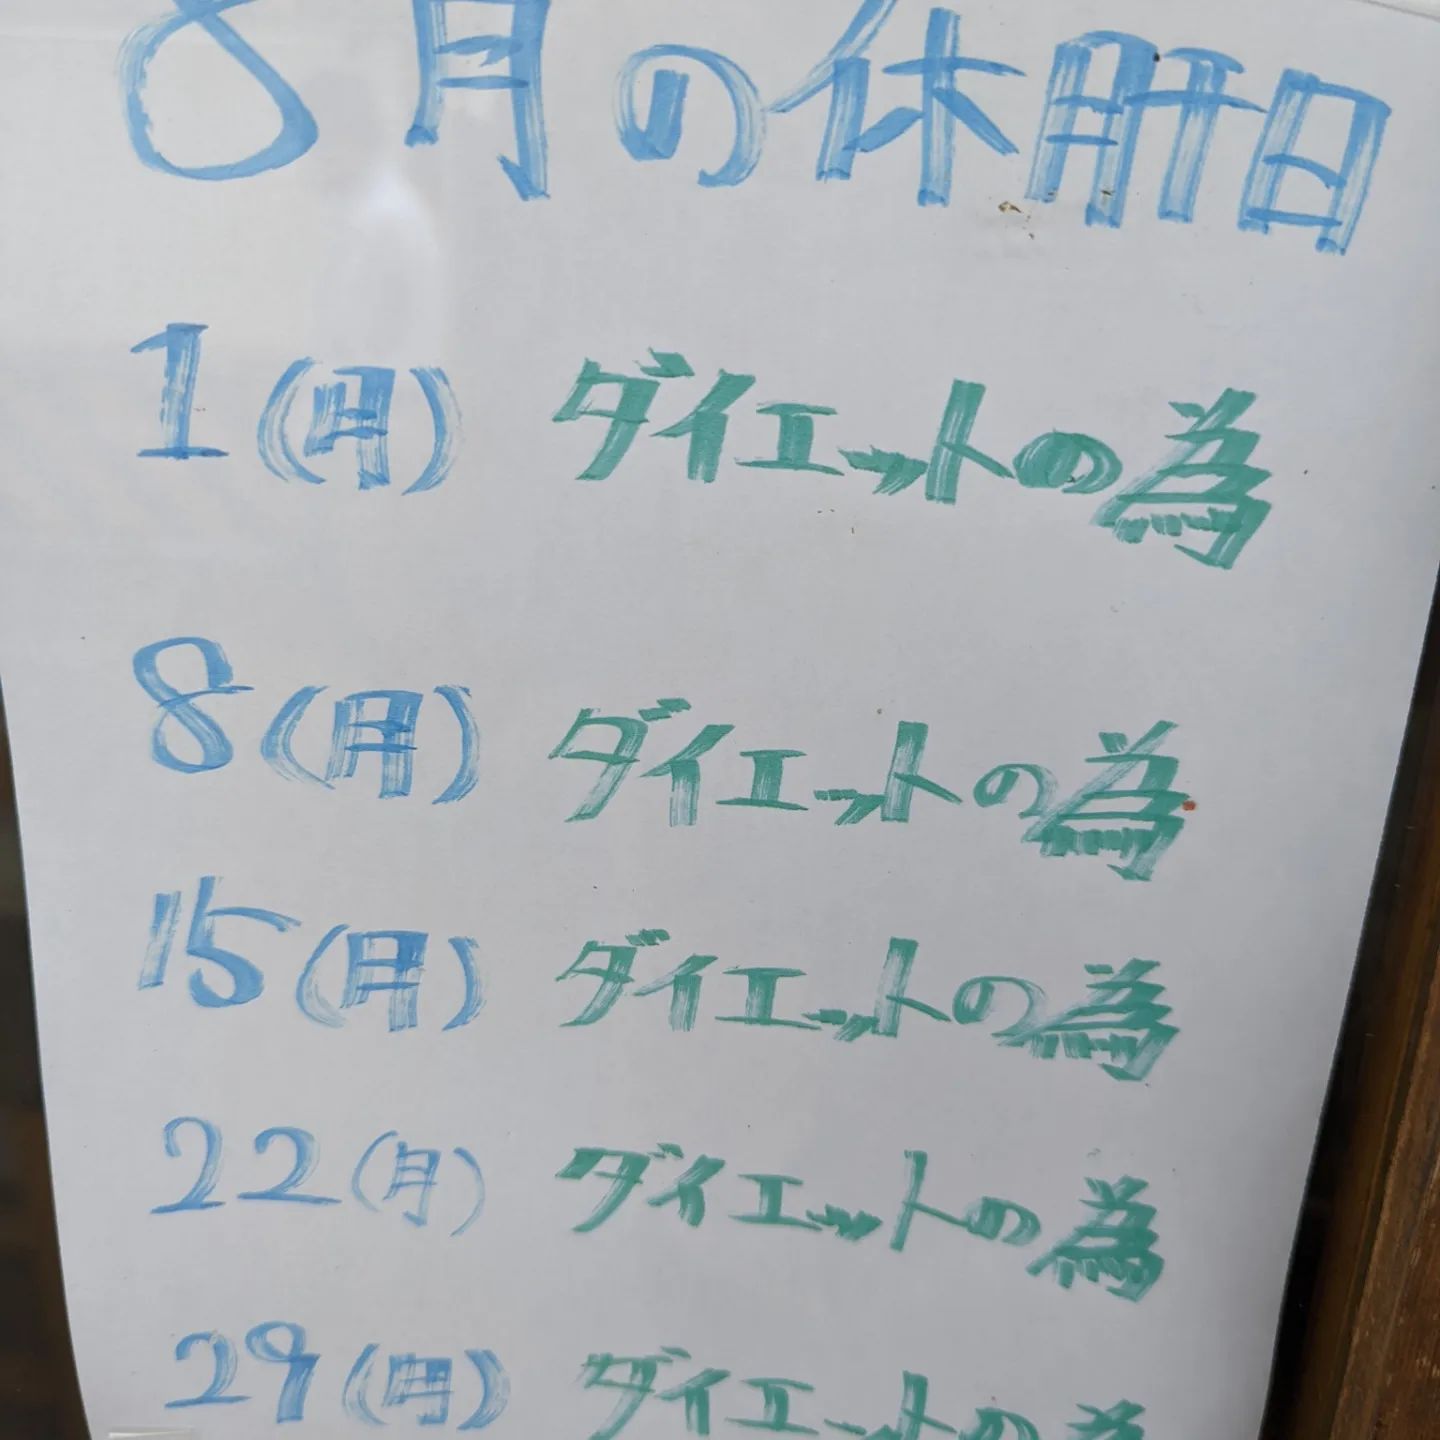 8月の休肝日
1(月) ダイエットの為
8(月) ダイエットの為
15(月) ダイエットの為
22(月) ダイエットの為
29(月) ダイエットの為